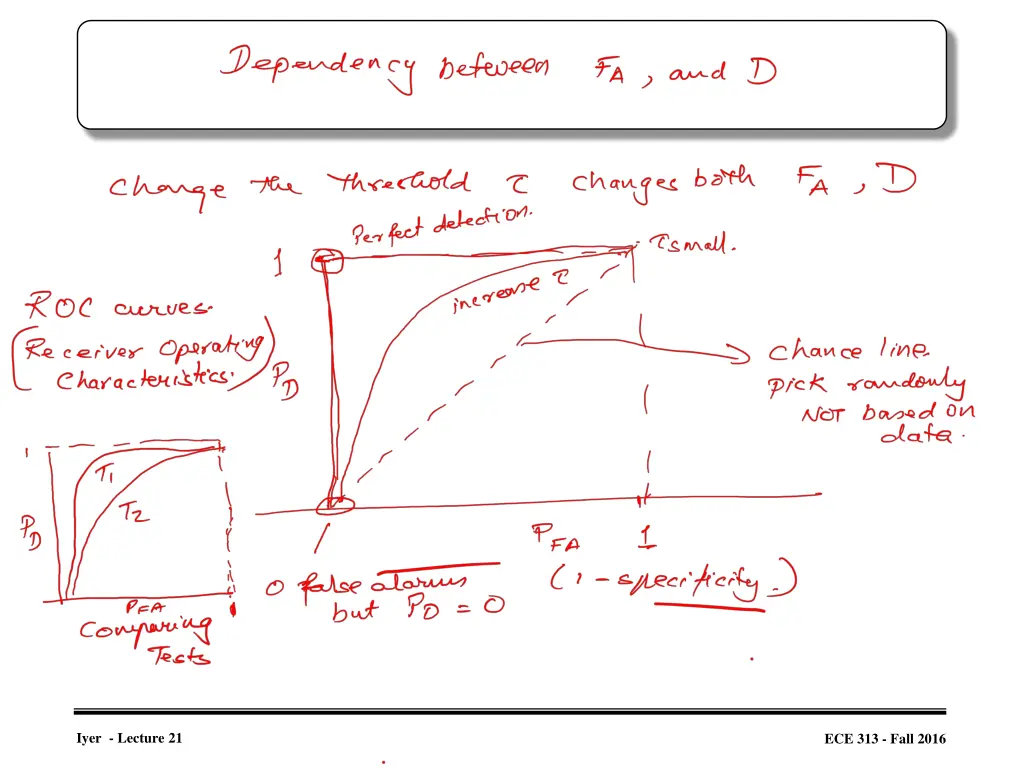 Dependency between FA, and D
Change the threshold τ changes both FA, D
Perfect detection.
1
τ small.
increase τ
ROC curves.
(Receiver Operating
Characteristics.)
PD
Chance line.
Pick randomly
NOT based on
data.
1
T1
T2
PD
PFA
1
Comparing
Tests
PFA
1
(1 - specificity.)
0 false alarms
but PD = 0
Iyer - Lecture 21
ECE 313 - Fall 2016